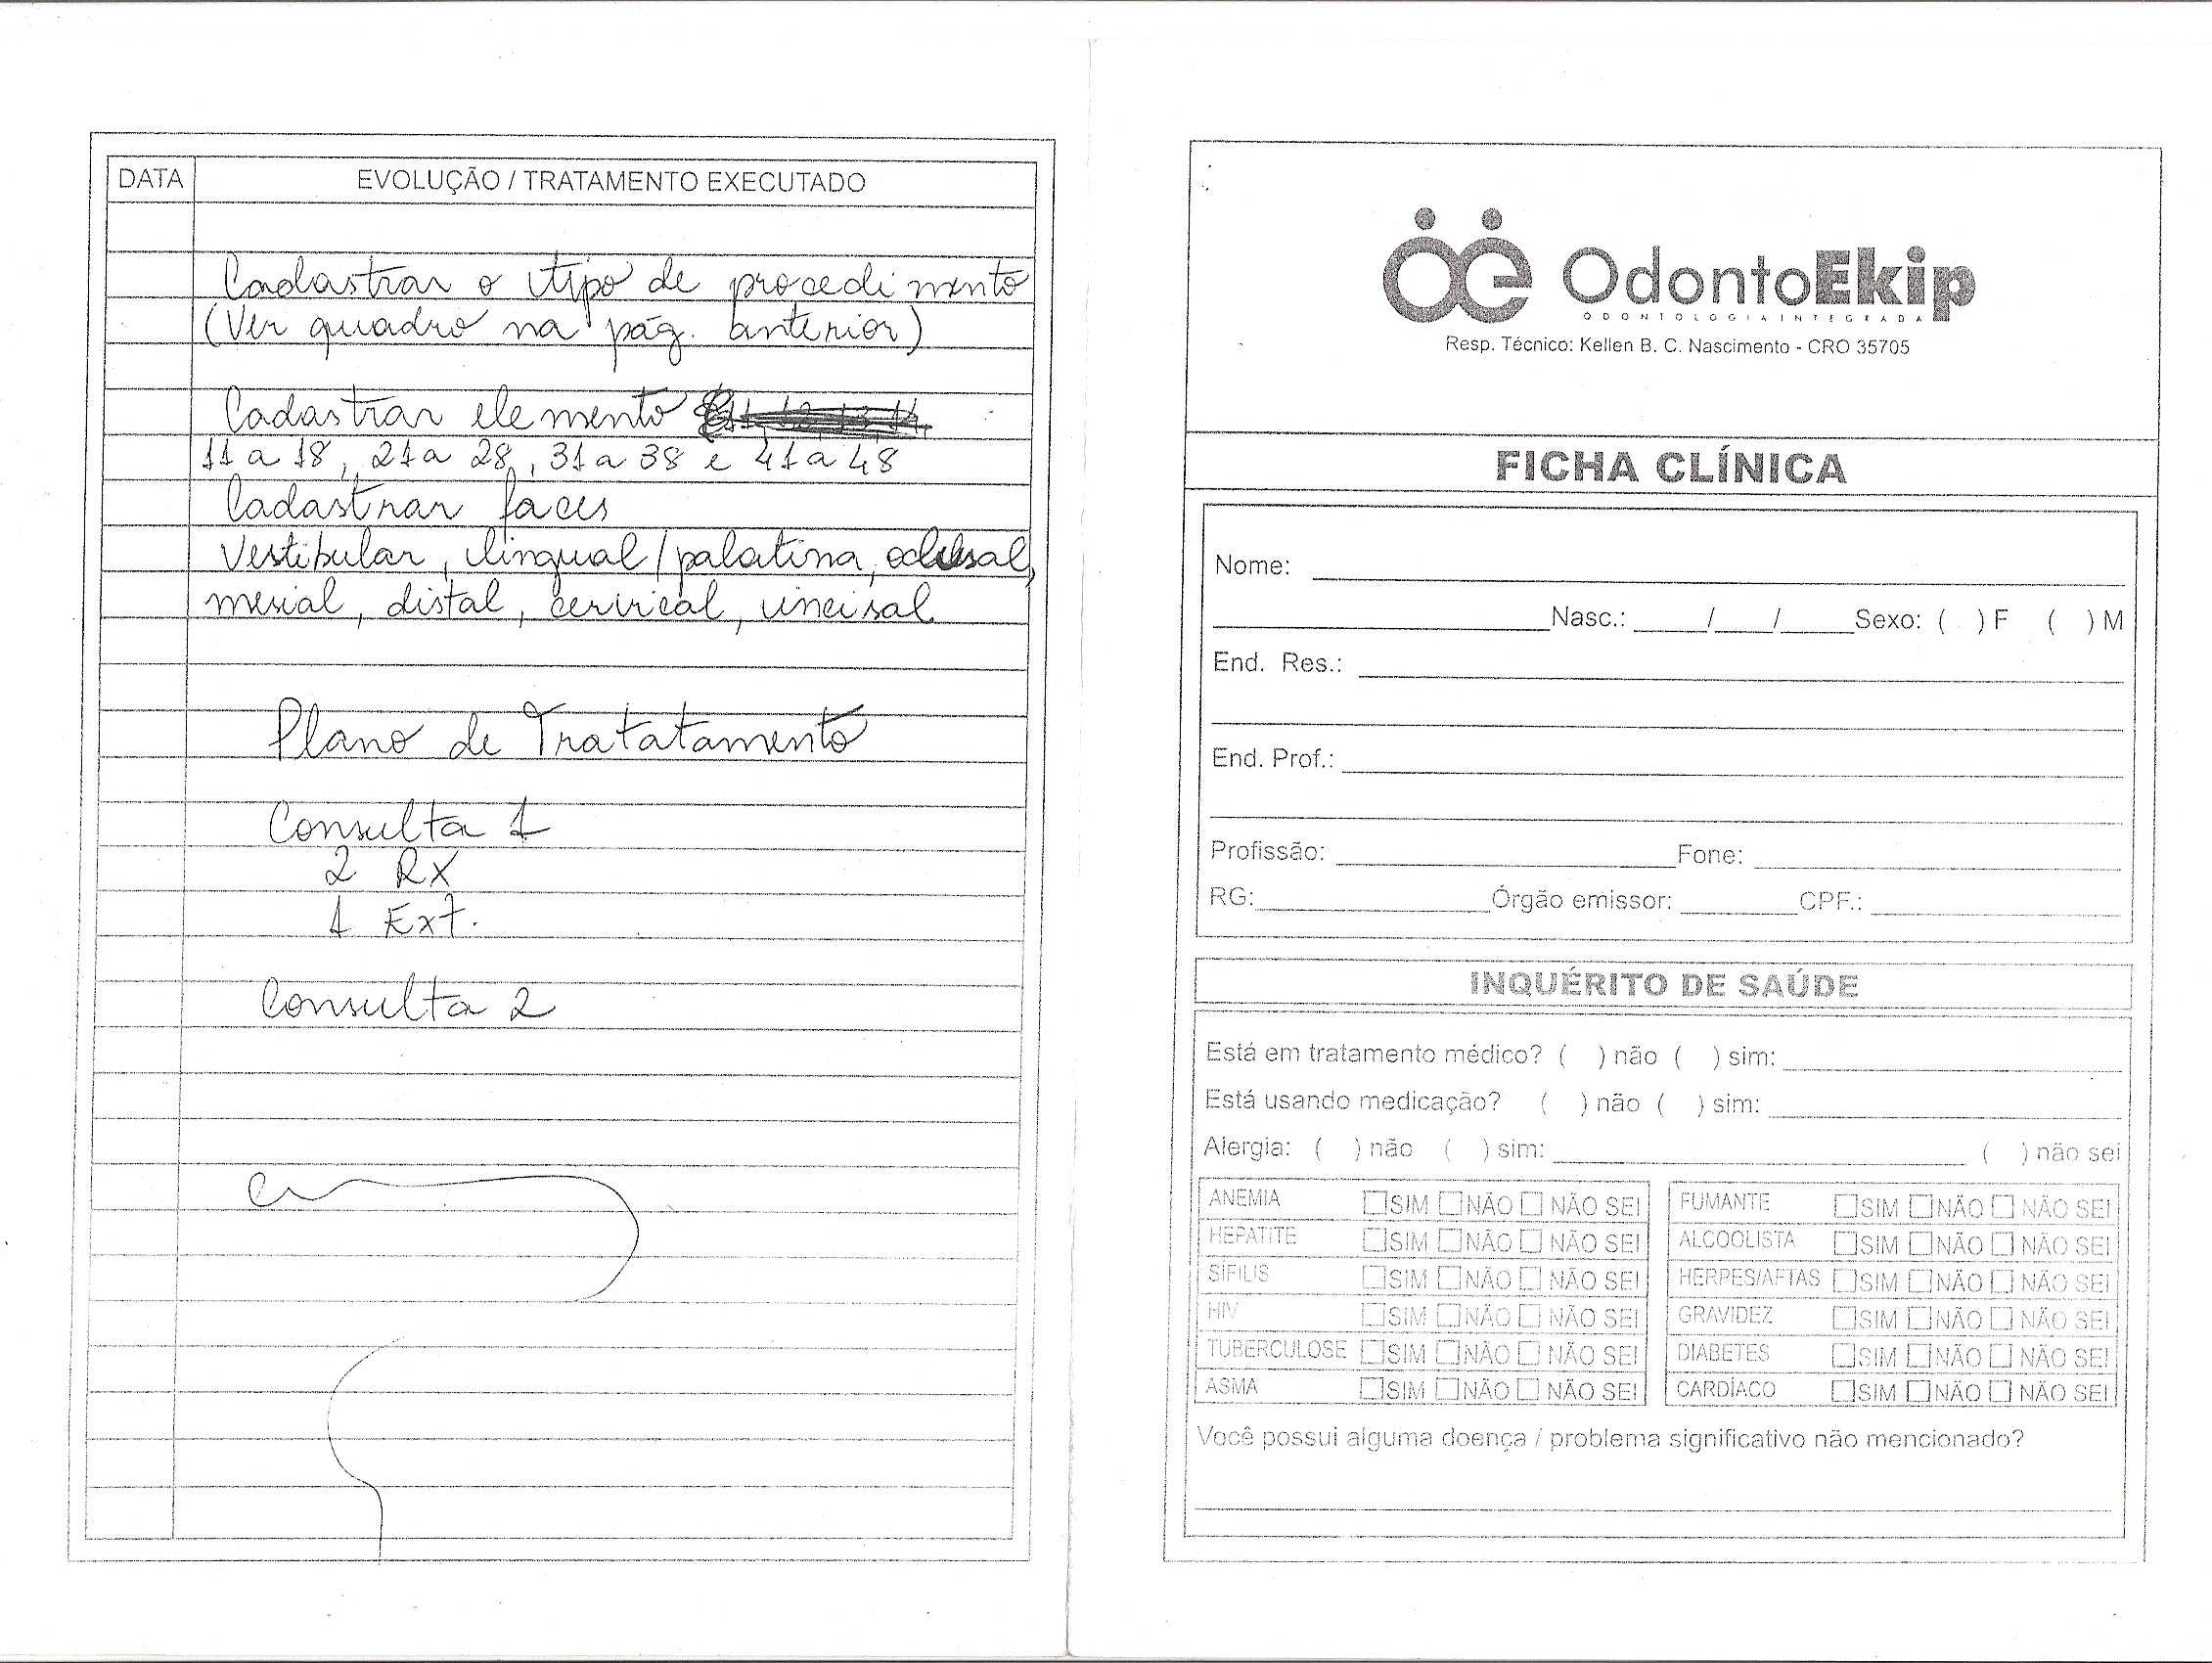 DATA EVOLUÇÃO / TRATAMENTO EXECUTADO
Cadastrar o tipo de procedimento
(Ver quadro na pág. anterior)
Cadastrar elemento
11 a 18, 21 a 28, 31 a 38 e 41 a 48
Cadastrar faces
Vestibular, lingual/palatina, oclusal,
mesial, distal, cervical, incisal
Plano de Tratatamento
Consulta 1
2 RX
1 Ext.
Consulta 2
OdontoEkip
ODONTOLOGIA INTEGRADA
Resp. Técnico: Kellen B. C. Nascimento - CRO 35705
FICHA CLÍNICA
Nome:
Nasc.: / / Sexo: ( ) F ( ) M
End. Res.:
End. Prof.:
Profissão: Fone:
RG: Órgão emissor: CPF.:
INQUÉRITO DE SAÚDE
Está em tratamento médico? ( ) não ( ) sim:
Está usando medicação? ( ) não ( ) sim:
Alergia: ( ) não ( ) sim: ( ) não sei
ANEMIA SIM NÃO NÃO SEI FUMANTE SIM NÃO NÃO SEI
HEPATITE SIM NÃO NÃO SEI ALCOOLISTA SIM NÃO NÃO SEI
SÍFILIS SIM NÃO NÃO SEI HERPES/AFTAS SIM NÃO NÃO SEI
HIV SIM NÃO NÃO SEI GRAVIDEZ SIM NÃO NÃO SEI
TUBERCULOSE SIM NÃO NÃO SEI DIABETES SIM NÃO NÃO SEI
ASMA SIM NÃO NÃO SEI CARDÍACO SIM NÃO NÃO SEI
Você possui alguma doença / problema significativo não mencionado?